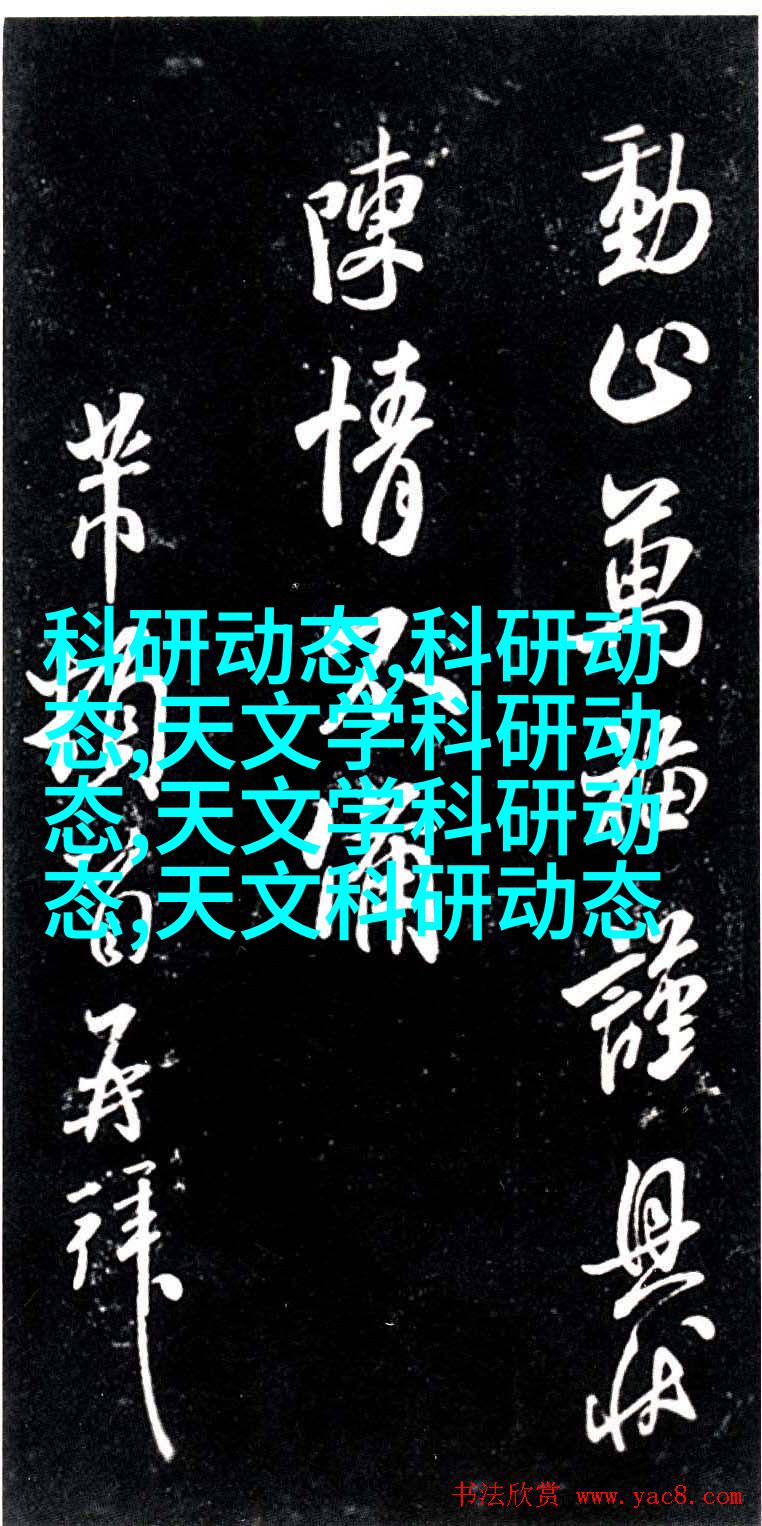 動止萬福謹具狀
陳情不備
芾頓首再拜
科研动态,科研动
态,天文学科研动
态,天文学科研动
态,天文科研动态
书法欣赏 www.yac8.com